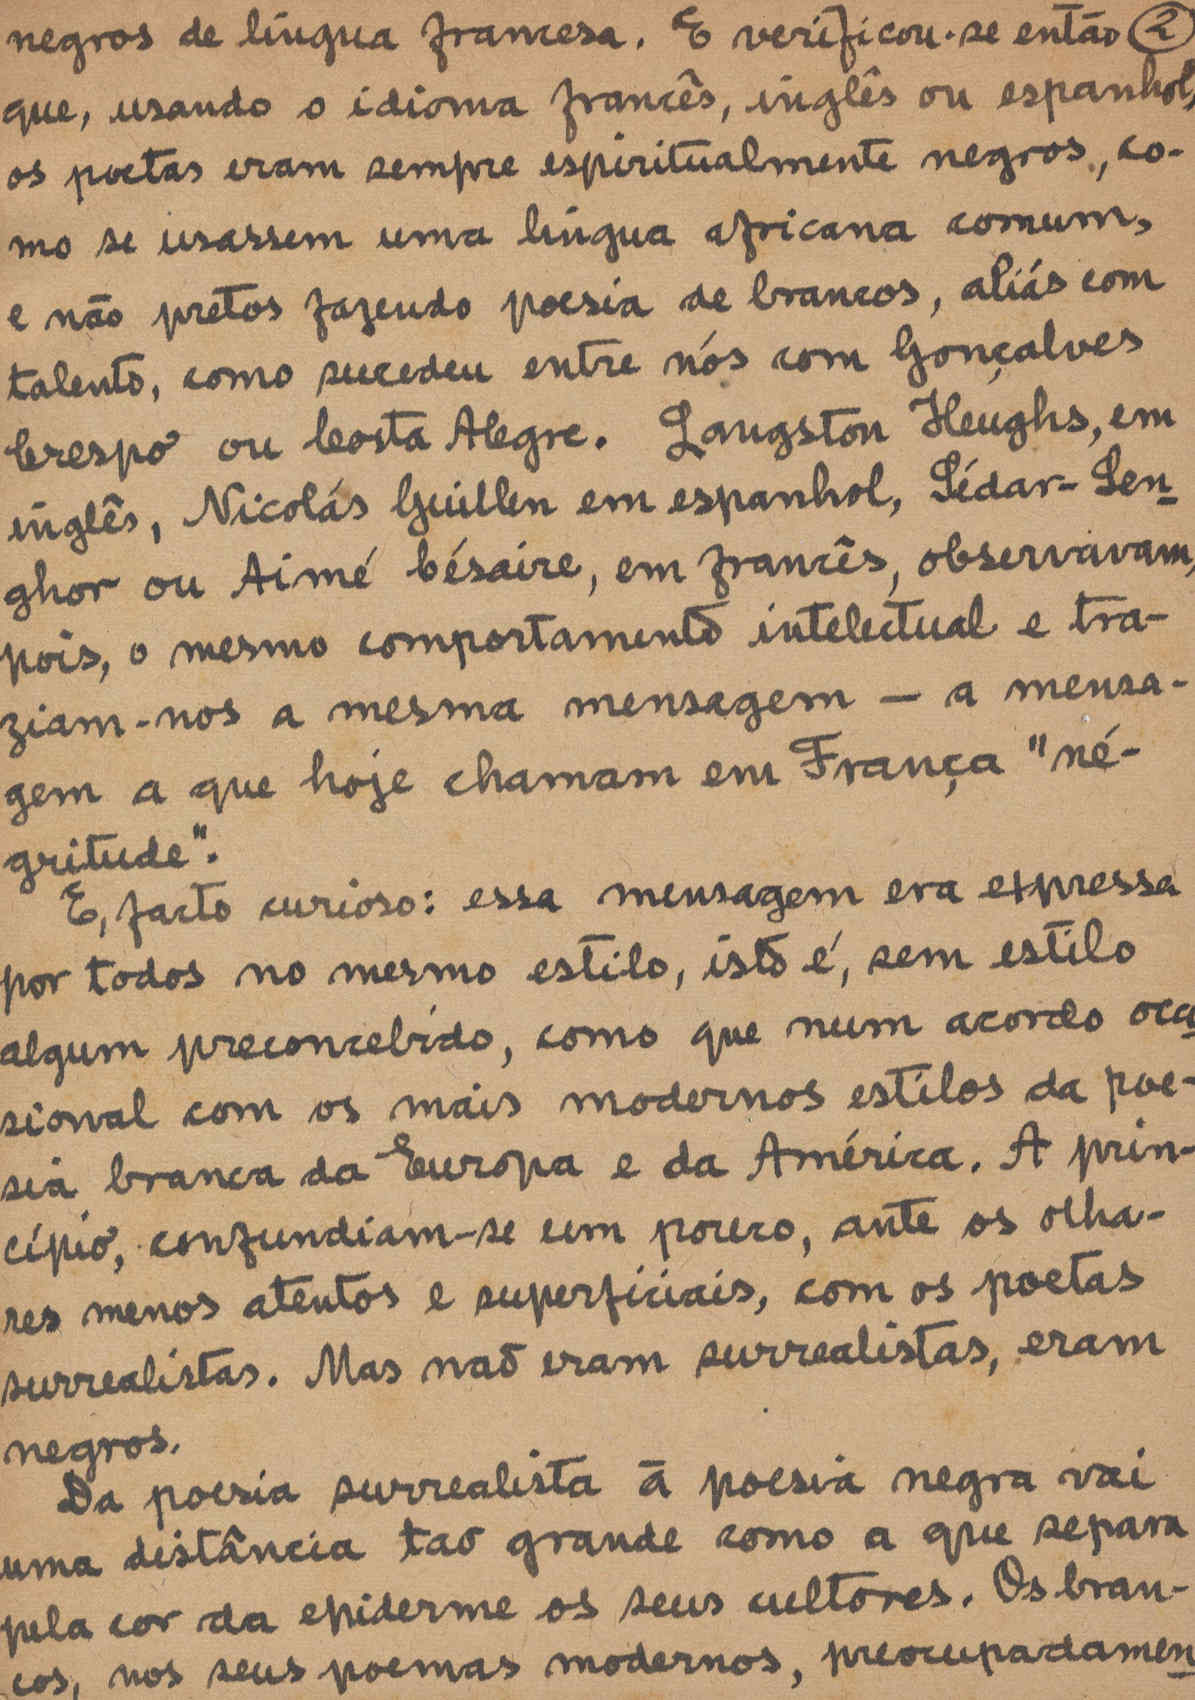 negros de língua francesa. E verificou-se então 2
que, usando o idioma francês, inglês ou espanhol,
os poetas eram sempre espiritualmente negros, co-
mo se usassem uma língua africana comum,
e não pretos fazendo poesia de brancos, aliás com
talento, como sucedeu entre nós com Gonçalves
Crespo ou Costa Alegre. Langston Heughs, em
inglês, Nicolás Guillen em espanhol, Sédar-Sen
ghor ou Aimé Césaire, em francês, observavam,
pois, o mesmo comportamento intelectual e tra-
ziam-nos a mesma mensagem — a mensa-
gem a que hoje chamam em França "né-
gritude".
E, facto curioso: essa mensagem era expressa
por todos no mesmo estilo, isto é, sem estilo
algum preconcebido, como que num acordo oca
sional com os mais modernos estilos da poe-
sia branca da Europa e da América. A prin-
cípio, confundiam-se um pouco, ante os olha-
res menos atentos e superficiais, com os poetas
surrealistas. Mas não eram surrealistas, eram
negros.
Da poesia surrealista à poesia negra vai
uma distância tão grande como a que separa
pela cor da epiderme os seus cultores. Os bran-
cos, nos seus poemas modernos, preocupadamen